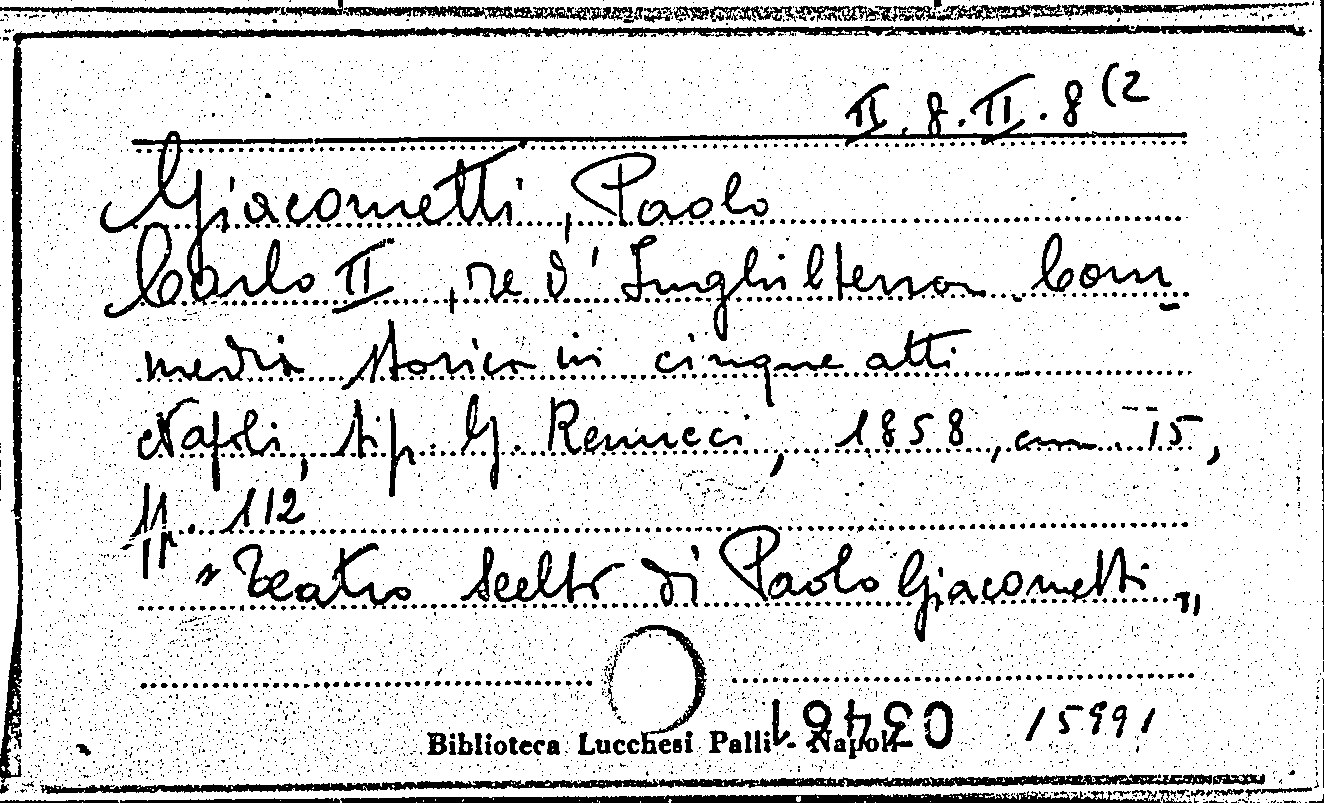 II. 8. II. 8 (2
Giacometti, Paolo
Carlo II, re d'Inghilterra. Com-
media storica in cinque atti
Napoli, tip. G. Renneci, 1858, cm. 15,
pp. 112
"Teatro scelto di Paolo Giacometti"
03481 15991
Biblioteca Lucchesi Palli - Napoli